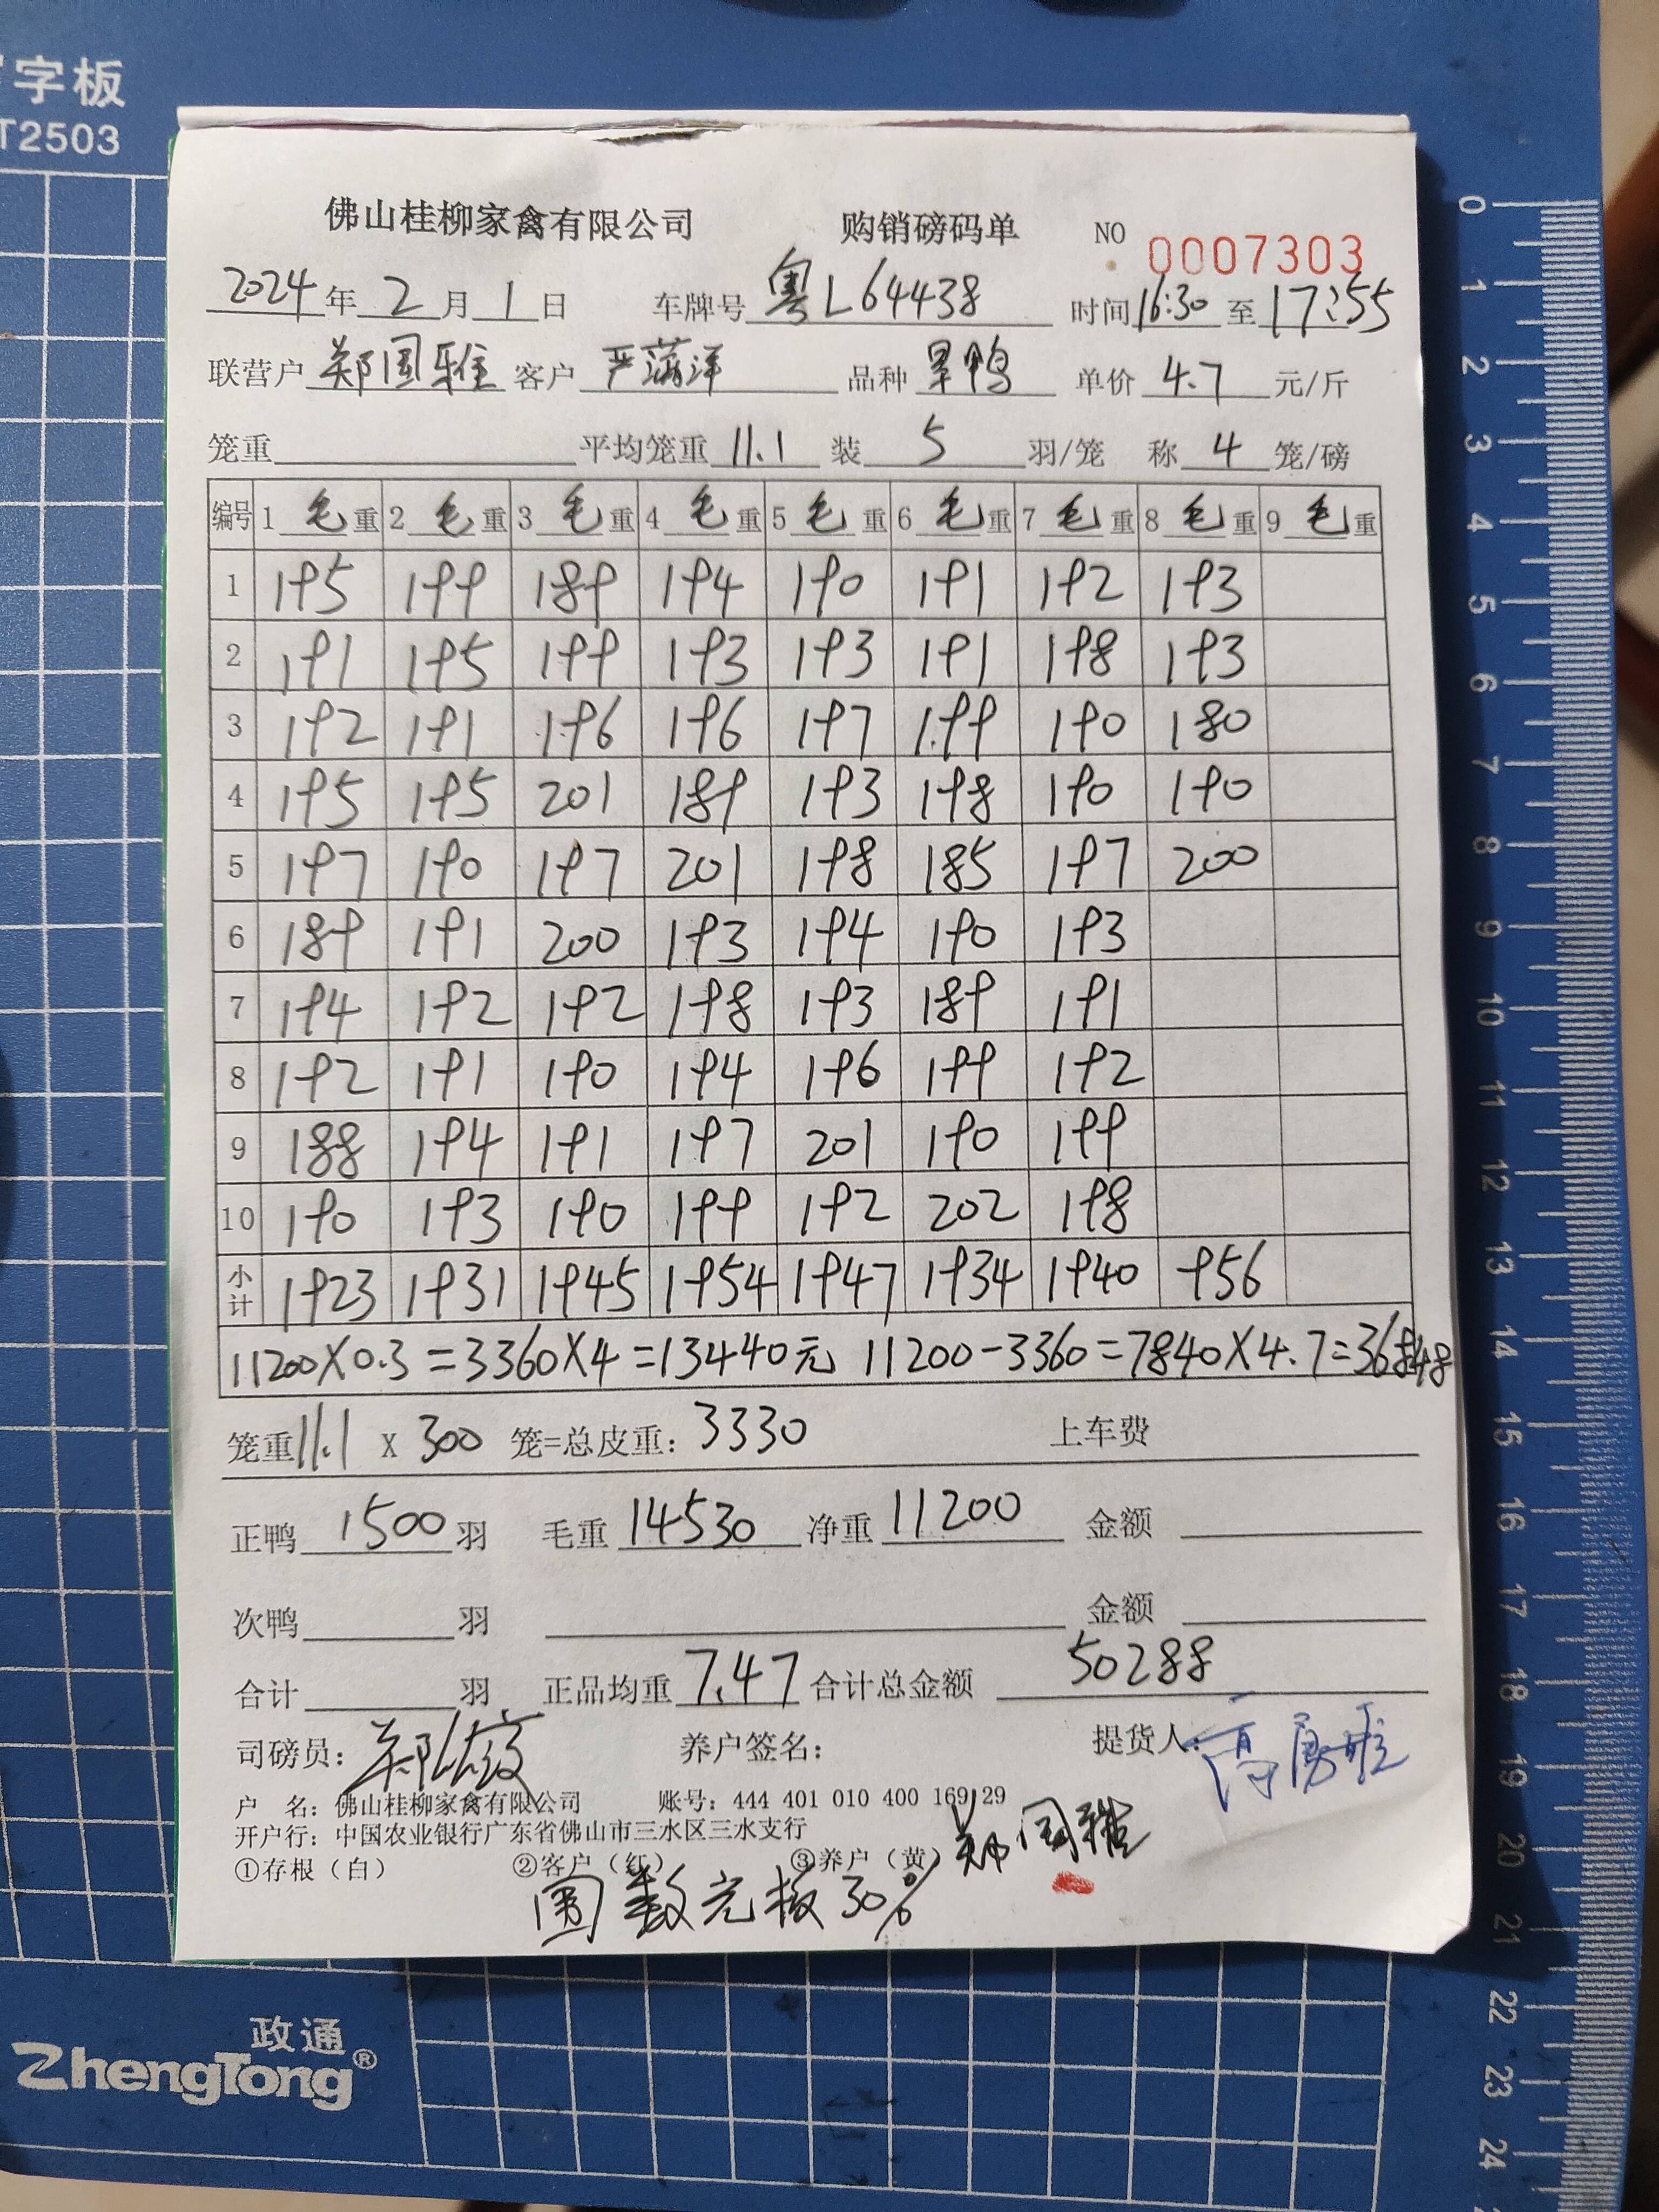 字板
T2503
佛山桂柳家禽有限公司 购销磅码单 NO 0007303
2024年 2月 1日 车牌号 粤L64438 时间 16:30 至 17:55
联营户 郑国雅 客户 严满洋 品种 旱鸭 单价 4.7 元/斤
笼重 平均笼重 11.1 装 5 羽/笼 称 4 笼/磅
编号 1 毛重 2 毛重 3 毛重 4 毛重 5 毛重 6 毛重 7 毛重 8 毛重 9 毛重
1 195 199 189 194 190 191 192 193
2 191 195 199 193 193 191 198 193
3 192 191 196 196 197 199 190 180
4 195 195 201 189 193 198 190 190
5 197 190 197 201 198 185 197 200
6 189 191 200 193 194 190 193
7 194 192 192 198 193 189 191
8 192 191 190 194 196 199 192
9 188 194 191 197 201 190 199
10 190 193 190 199 192 202 198
小计 1923 1931 1945 1954 1947 1934 1940 956
11200×0.3=3360×4=13440元 11200-3360=7840×4.7=36848
笼重 11.1 X 300 笼=总皮重: 3330 上车费
正鸭 1500 羽 毛重 14530 净重 11200 金额
次鸭 羽 金额
合计 羽 正品均重 7.47 合计总金额 50288
司磅员: 养户签名: 提货人:
户 名: 佛山桂柳家禽有限公司 账号: 444 401 010 400 169 29
开户行: 中国农业银行广东省佛山市三水区三水支行 郑国雅
①存根（白） ②客户（红） ③养户（黄）
数 30%
政通
ZhengTong®
0
1
2
3
4
5
6
7
8
9
10
11
12
13
14
15
16
17
18
19
20
21
22
23
24